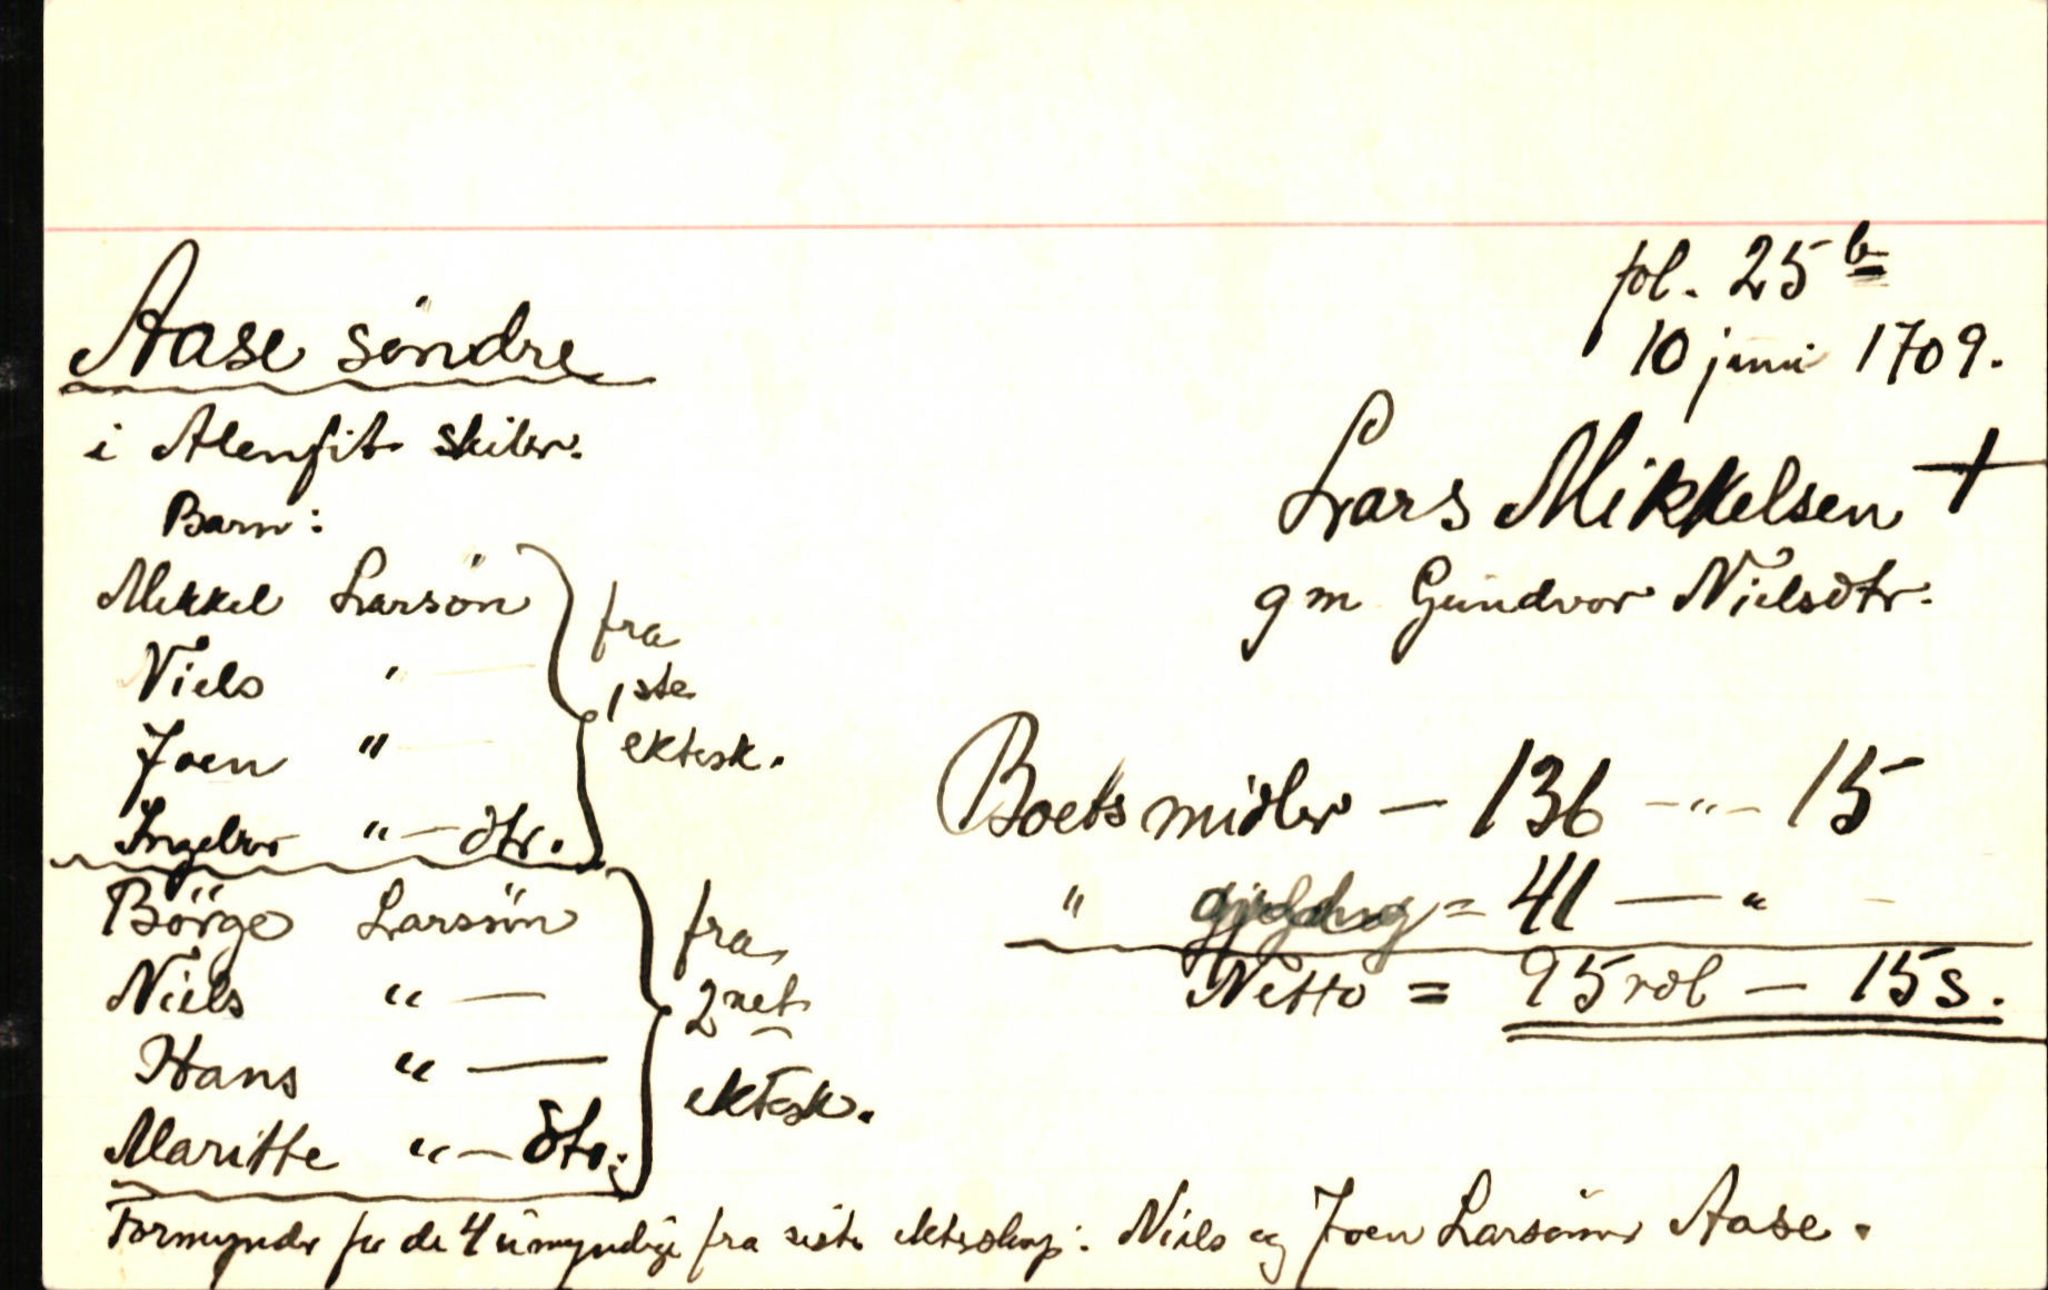 fol. 25 b
10 juni 1709.
Aase söndre
i Alenfit skiler.
Lars Mikkelsen +
gm Gundvor Nielsdtr.
Barn:
Mikkel Larsön
Niels "
Joen "
Ingebor " — dtr.
fra
1ste
ektesk.
Börge Larsön
Niels " —
Hans " —
Maritte " — dtr.
fra
2net
ektesk.
Boets midler — 136 - " - 15
" = 41 — "
Netto = 95 rdl — 15 s.
Formynder for de 4 umyndige fra siste ekteskap: Niels og Joen Larsönner Aase.